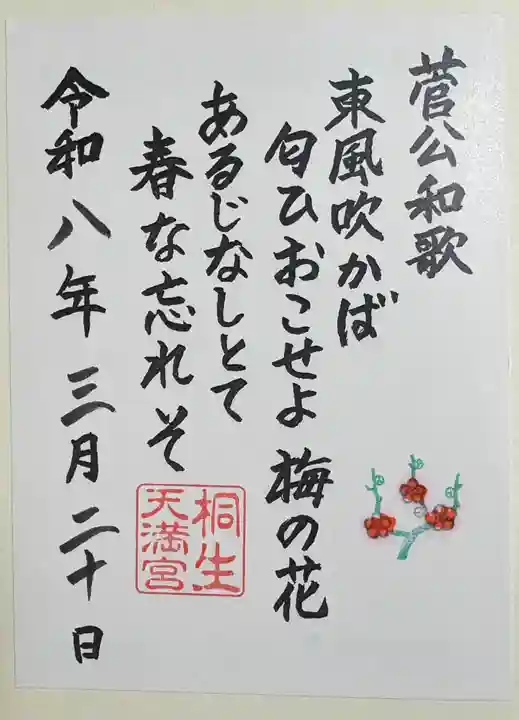 菅公和歌
東風吹かば
匂ひおこせよ 梅の花
あるじなしとて
春な忘れそ
桐生
天満宮
令和八年三月二十日